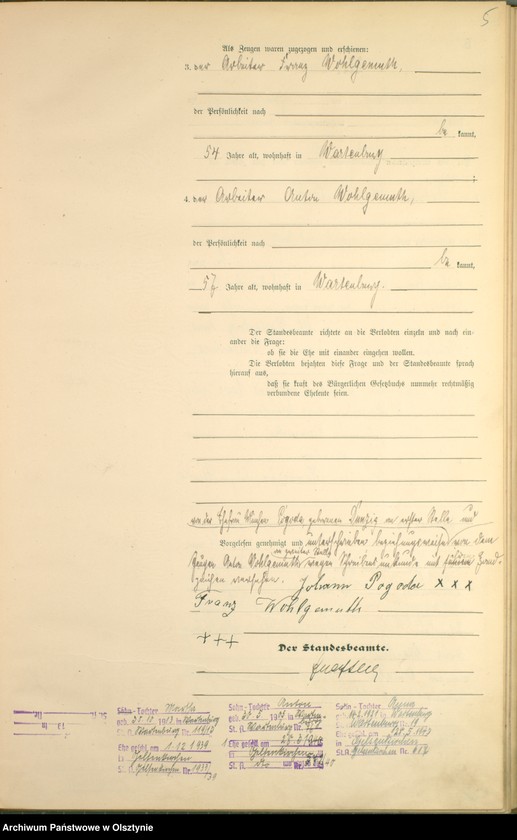 5
Als Zeugen waren zugezogen und erschienen:
3. der Arbeiter Franz Wohlgemuth,
der Persönlichkeit nach
be kannt,
54 Jahre alt, wohnhaft in Wartenburg
;
4. der Arbeiter Anton Wohlgemuth,
der Persönlichkeit nach
be kannt,
57 Jahre alt, wohnhaft in Wartenburg.
Der Standesbeamte richtete an die Verlobten einzeln und nach ein-
ander die Frage:
ob sie die Ehe mit einander eingehen wollen.
Die Verlobten bejahten diese Frage und der Standesbeamte sprach
hierauf aus,
daß sie kraft des Bürgerlichen Gesetzbuchs nunmehr rechtmäßig
verbundene Eheleute seien.
von der Ehefrau Pogoda geborenen Danzig in erster Stelle und
Vorgelesen, genehmigt und unterschrieben beziehungsweise von dem
in zweiter Stelle
Zeugen Anton Wohlgemuth wegen Schreibensunkunde mit Hand-
zeichen versehen. Johann Pogoda x x x
Franz Wohlgemuth
+++
Der Standesbeamte.
Sohn - Tochter Martha
geb. 27.10 1913 in Wartenburg
St. A. Wartenburg Nr.
Ehe geschl. am 1.12 1939
in Gelsenkirchen
St. A. Gelsenkirchen Nr.
Sohn - Tochter Anton
geb.
St. A. Wartenburg Nr.
Ehe geschl. am
in Gelsenkirchen
St. A. Nr.
Sohn - Tochter Anna
geb. 1921 in Wartenburg
Wartenburg Nr.
Ehe geschl. am
in Gelsenkirchen
St.A. Gelsenkirchen Nr.
Archiwum Państwowe w Olsztynie